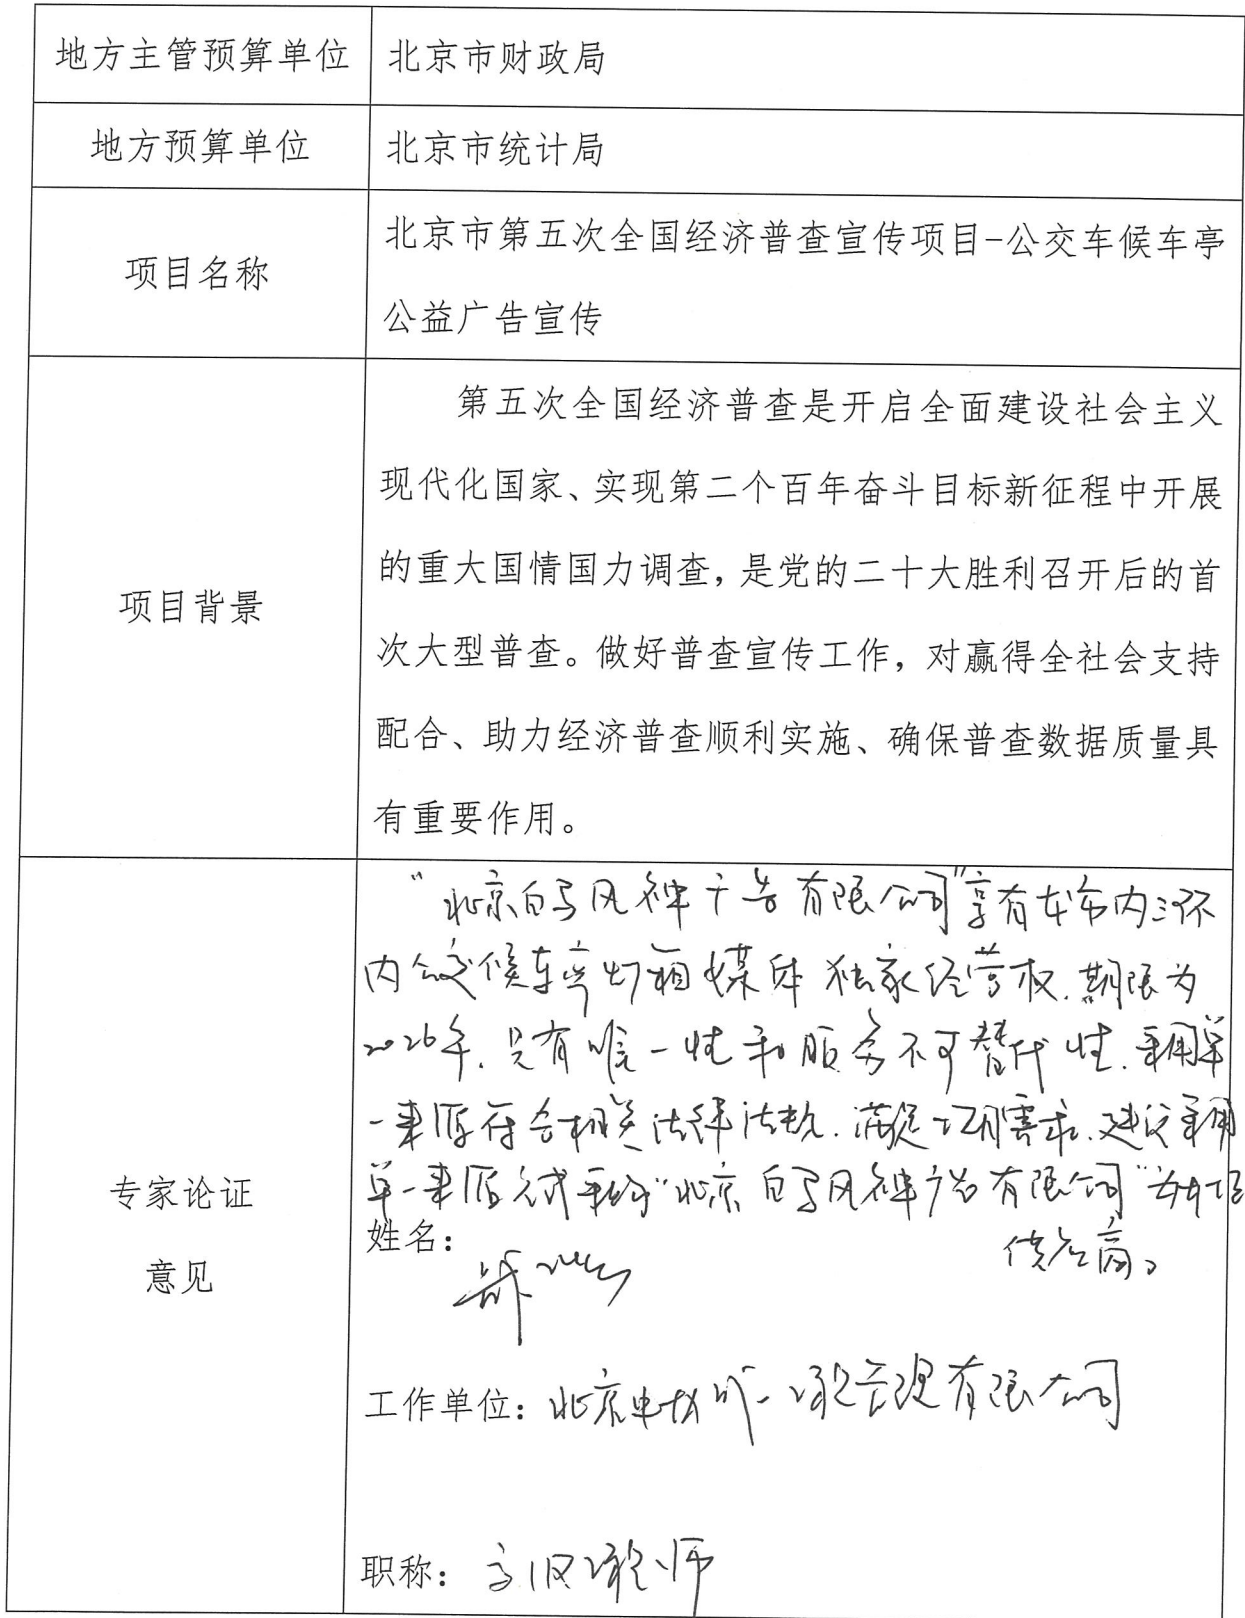 地方主管预算单位
北京市财政局
地方预算单位
北京市统计局
项目名称
北京市第五次全国经济普查宣传项目-公交车候车亭
公益广告宣传
项目背景
第五次全国经济普查是开启全面建设社会主义
现代化国家、实现第二个百年奋斗目标新征程中开展
的重大国情国力调查，是党的二十大胜利召开后的首
次大型普查。做好普查宣传工作，对赢得全社会支持
配合、助力经济普查顺利实施、确保普查数据质量具
有重要作用。
专家论证
意见
“北京白马风神广告有限公司”享有本市内三环
内公交候车亭灯箱媒体独家经营权.期限为
2026年.具有唯一性和服务不可替代性.采用单
一来源符合相关法律法规.满足项目需求.建议采用
单一来源方式采购“北京白马风神广告有限公司”为本项目
供应商。
姓名：
工作单位：北京 工程管理有限公司
职称：高级工程师